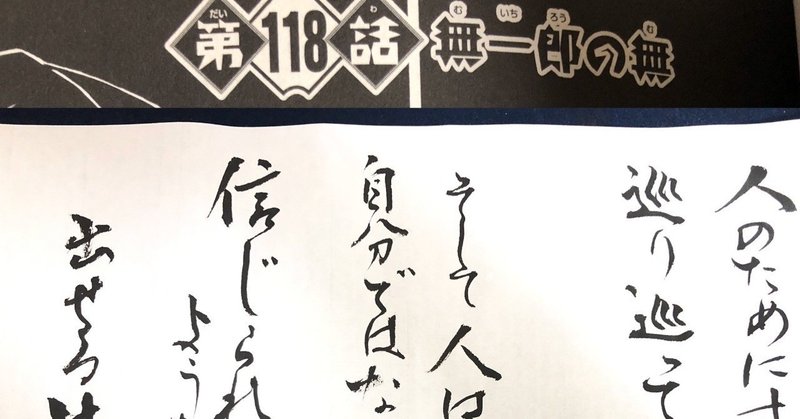 だい わ む いち ろう む
第118話 無一郎の無
人のためにす
巡り巡って
そして人は
自分ではな
信じられ
よう
出せる